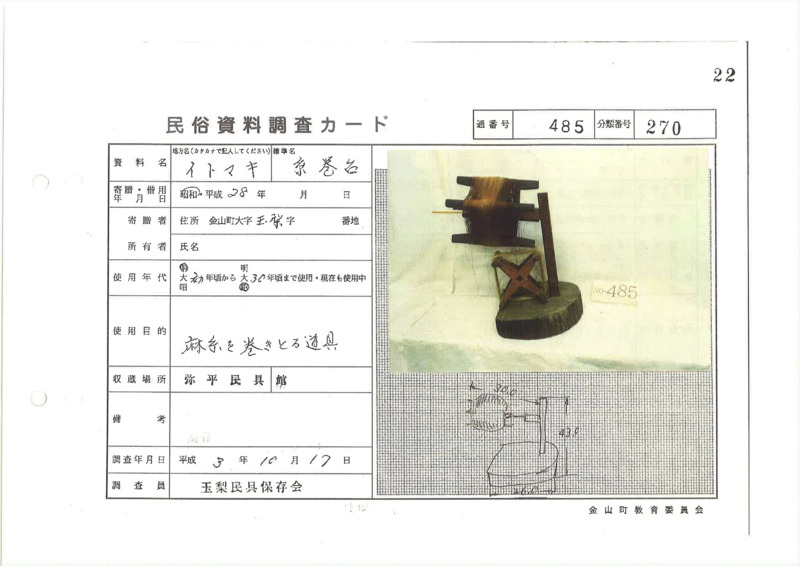 22
民俗資料調査カード
通番号 485 分類番号 270
資料名 地方名(カタカナで記入してください) イトマキ 標準名 糸巻台
寄贈・借用年月日 昭和・平成 28 年 月 日
寄贈者 住所 金山町大字 玉梨 字 番地
所有者 氏名
使用年代 明 大 昭 初 年頃から 明 大 昭 30 年頃まで使用・現在も使用中
使用目的 麻糸を巻きとる道具
収蔵場所 弥平民具館
備考
調査年月日 平成 3 年 10 月 17 日
調査員 玉梨民具保存会
No.485
30.0
43.0
26.0
金山町教育委員会